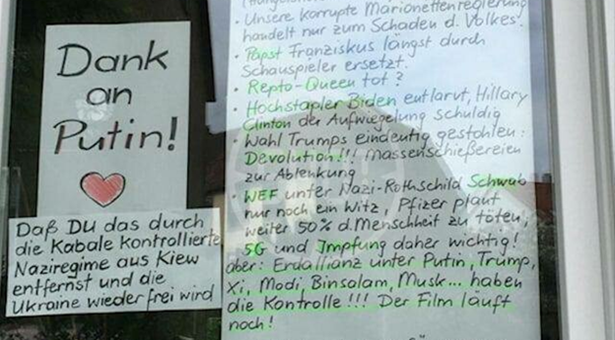 Dank
an
Putin!
Daß DU das durch
die Kabale kontrollierte
Naziregime aus Kiew
entfernst und die
Ukraine wieder frei wird
• Unsere korrupte Marionettenregierung
handelt nur zum Schaden d. Volkes!
• Papst Franziskus längst durch
Schauspieler ersetzt.
• Repto-Queen tot?
• Hochstapler Biden entlarvt, Hillary
Clinton der Aufwiegelung schuldig
• Wahl Trumps eindeutig gestohlen:
Devolution!!! Massenschießereien
zur Ablenkung
• WEF unter Nazi-Rothschild Schwab
nur noch ein Witz, Pfizer plant
weiter 50% d. Menschheit zu töten,
5G und Impfung daher wichtig!
aber: Erdallianz unter Putin, Trump,
Xi, Modi, Binsolam, Musk... haben
die Kontrolle!!! Der Film läuft
noch!